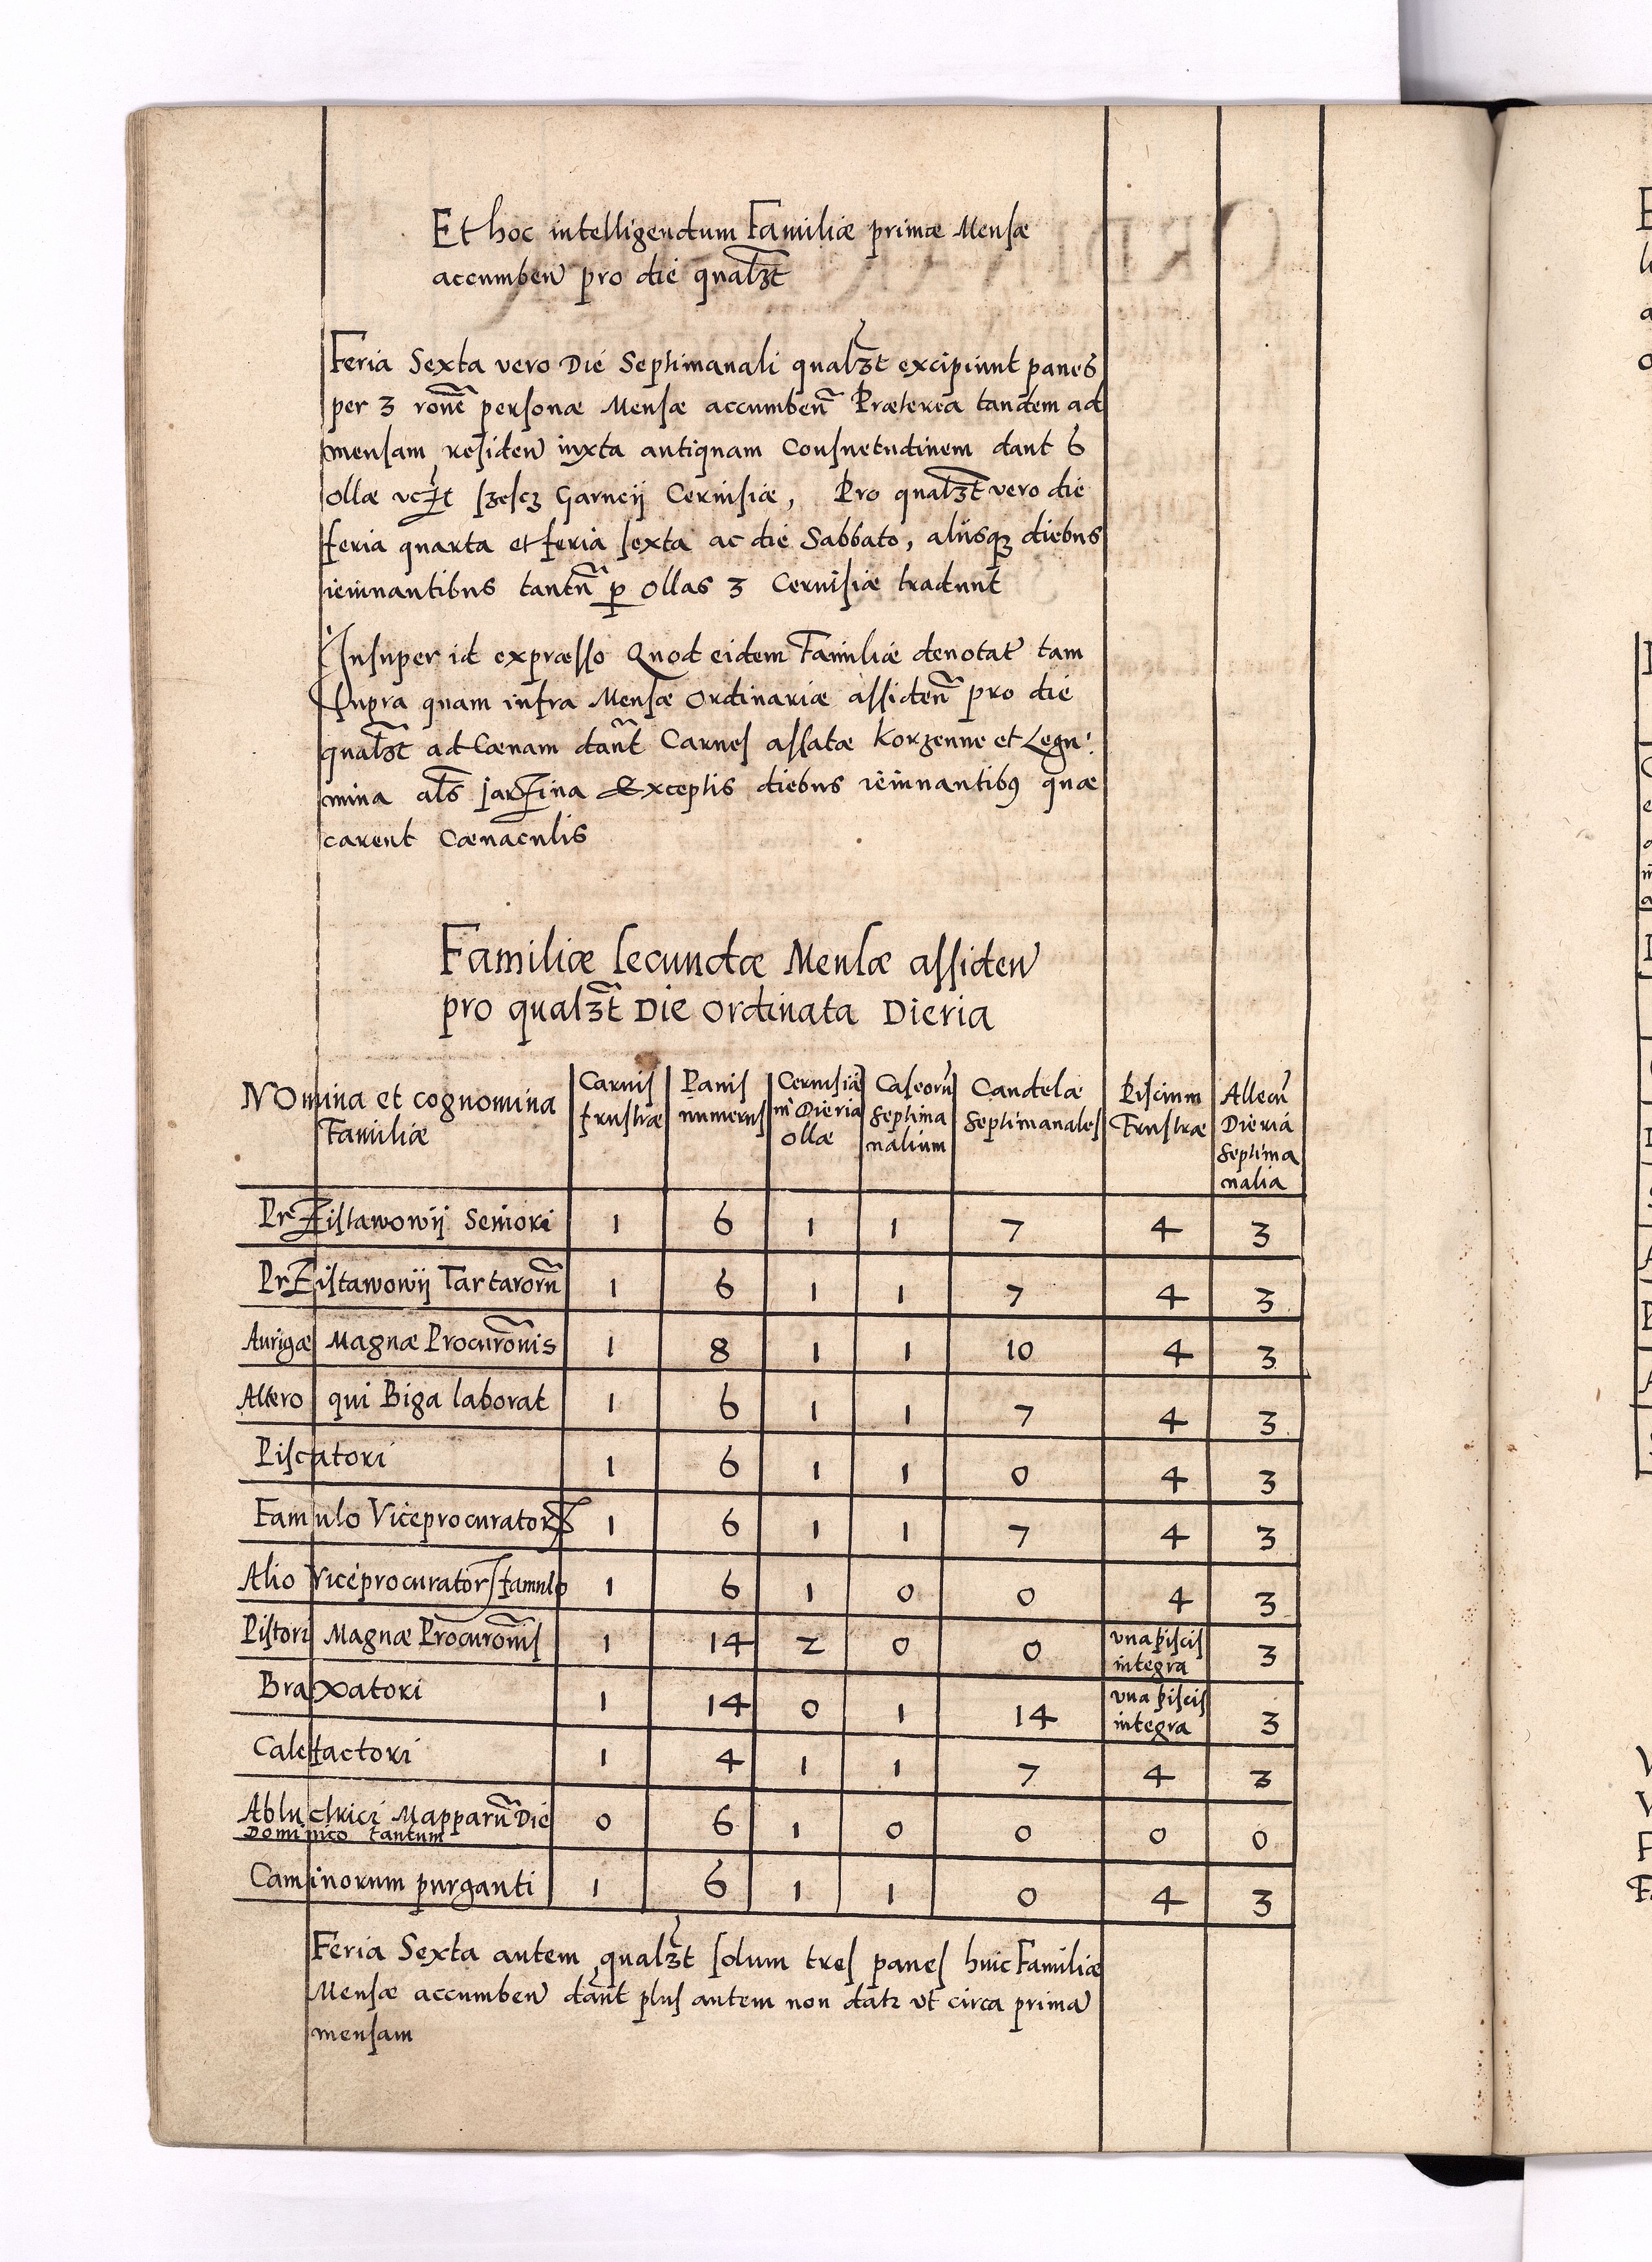 Et hoc intelligendum Familiæ primæ Mensæ
accumben pro die qualzt
Feria Sexta vero Die Septimanali qualzt excipiunt panes
per 3 rone personæ Mensæ accumben Præterea tandem ad
mensam residen iuxta antiquam Consuetudinem dant 6
ollæ vczt szescz Garncij Ceruisiæ, Pro qualzt vero die
feria quarta et feria sexta ac die Sabbato, aliisqz diebus
ieiunantibus tantu p ollas 3 Ceruisiæ tradunt
Insuper id expræsso Quod eidem Familiæ denotat tam
supra quam infra Mensæ ordinariæ assiden pro die
qualzt ad Cœnam dant Carnes assatæ korzenne et Legu
mina als jarzina Exceptis diebus ieiunantibus quæ
carent Cœnaculis
Familiæ secundæ Mensæ assiden
pro qualzt Die Ordinata Dieria
Nomina et cognomina Familiæ | Carnis frustræ | Panis numerus | Ceruisiæ in Dieria ollæ | Caseoru septima nalium | Candelæ septimanales | Piscium Frustræ | Allecu Dieria septima nalia
Przistawowij Seniori 1 6 1 1 7 4 3
Przistawowij Tartaroru 1 6 1 1 7 4 3
Aurigæ Magnæ Procuronis 1 8 1 1 10 4 3
Altero qui Biga laborat 1 6 1 1 7 4 3
Piscatori 1 6 1 1 0 4 3
Famulo Viceprocuratoris 1 6 1 1 7 4 3
Alio Viceprocurator famulo 1 6 1 0 0 4 3
Pistori Magnæ Procuronis 1 14 2 0 0 vna piscis integra 3
Braxatori 1 14 0 1 14 vna piscis integra 3
Calefactori 1 4 1 1 7 4 3
Ablu ctrici Mapparu Die Dominico tantum 0 6 1 0 0 0 0
Caminorum purganti 1 6 1 1 0 4 3
Feria Sexta autem qualzt solum tres panes huic Familiæ
Mensæ accumben dant plus autem non datr vt circa prima
mensam